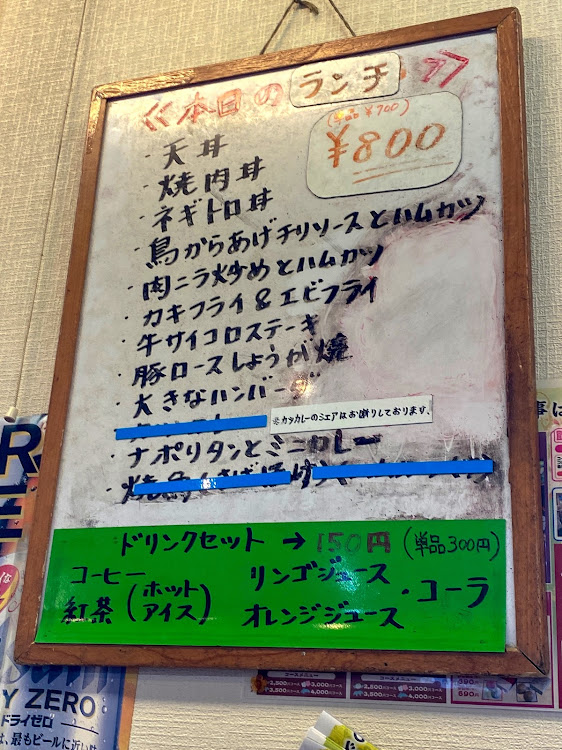 ≪本日のランチ≫
(単品¥700)
¥800
・天丼
・焼肉丼
・ネギトロ丼
・鳥からあげチリソースとハムカツ
・肉ニラ炒めとハムカツ
・カキフライ&エビフライ
・牛サイコロステーキ
・豚ロースしょうが焼
・大きなハンバーグ
※カツカレーのシェアはお断りしております。
・ナポリタンとミニカレー
ドリンクセット→150円(単品300円)
コーヒー
紅茶
(ホット
アイス)
リンゴジュース
オレンジジュース
・コーラ
Y ZERO
ドライゼロ
は、最もビールに近い
コースメニュー